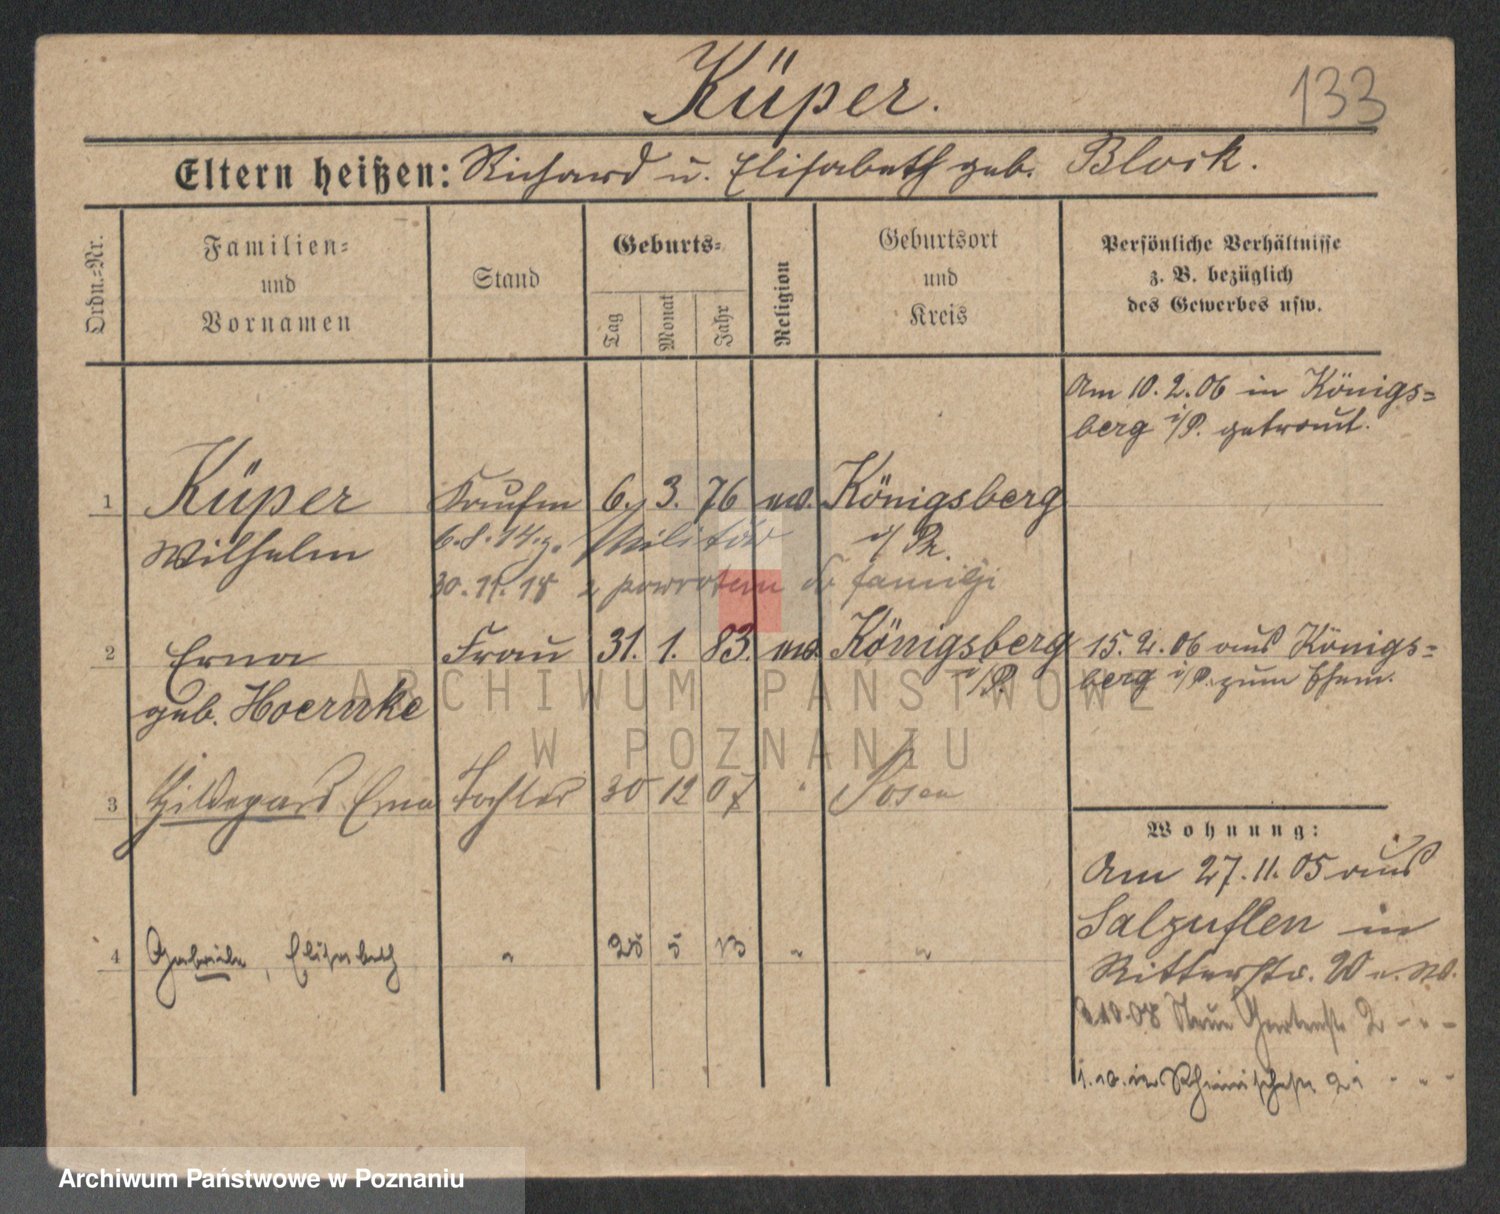 Küper.
133
Eltern heißen: Richard u. Elisabeth geb. Block.
Ordn.-Nr.
Familien-
und
Vornamen
Stand
Geburts-
Tag
Monat
Jahr
Religion
Geburtsort
und
Kreis
Persönliche Verhältnisse
z. B. bezüglich
des Gewerbes usw.
Am 10.2.06 in Königs-
berg i/P. getraut.
1 Küper Kaufm 6. 3. 76 Königsberg
Wilhelm 6.8.14 z. Militär i/Pr.
30.11.18 z powrotem do familji
2 Erna Frau 31. 1. 83. Königsberg 15.2.06 aus Königs-
geb. Hoernke i/P. berg i/P. zum Ehem.
3 Hildegard Erna Tochter 30 12 07 " Posen
Wohnung:
Am 27.11.05 aus
Salzuflen in
4 Gabriele, Elisabeth " 25 5 13 " "
Ritterstr. 20 u. W.
10.08 Neue Gartenstr 2 - " -
ARCHIWUM PAŃSTWOWE
W POZNANIU
Archiwum Państwowe w Poznaniu